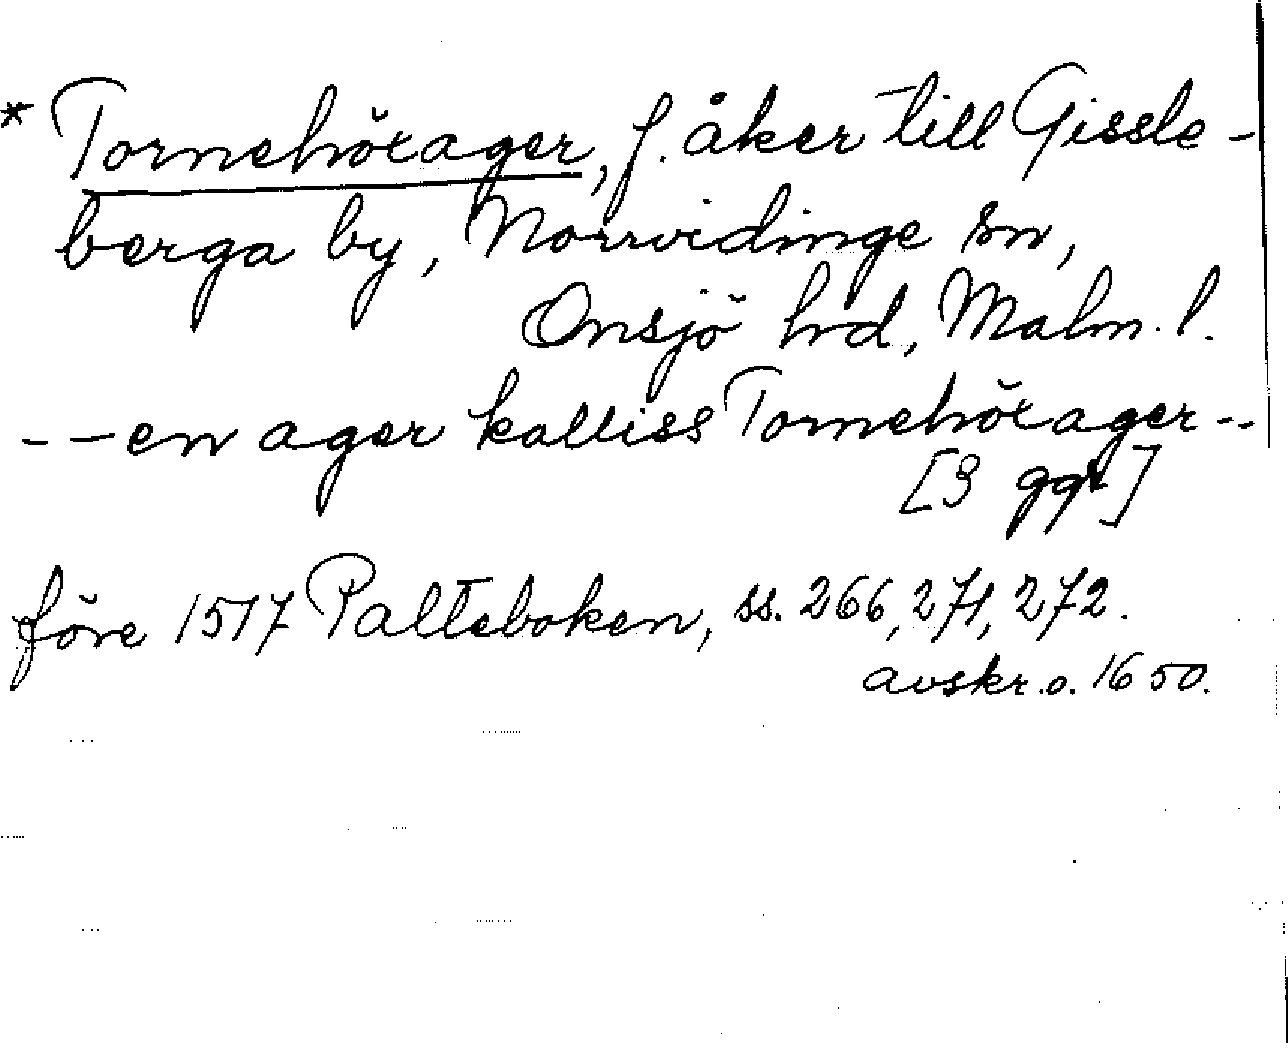 * Tornehöxager, f. åker till Gissle-
berga by, Norrvidinge sn,
Onsjö hd, Malm. l.
-- en ager kalliss Tornehöxager --
[3 ggr]
före 1517 Palteboken, ss. 266, 271, 272.
avskr. o. 1650.